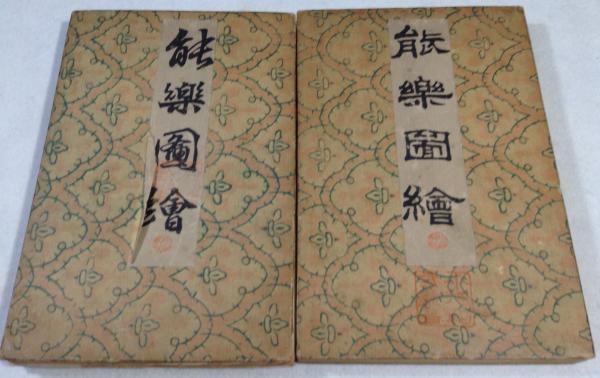 能樂圖繪
能樂圖繪